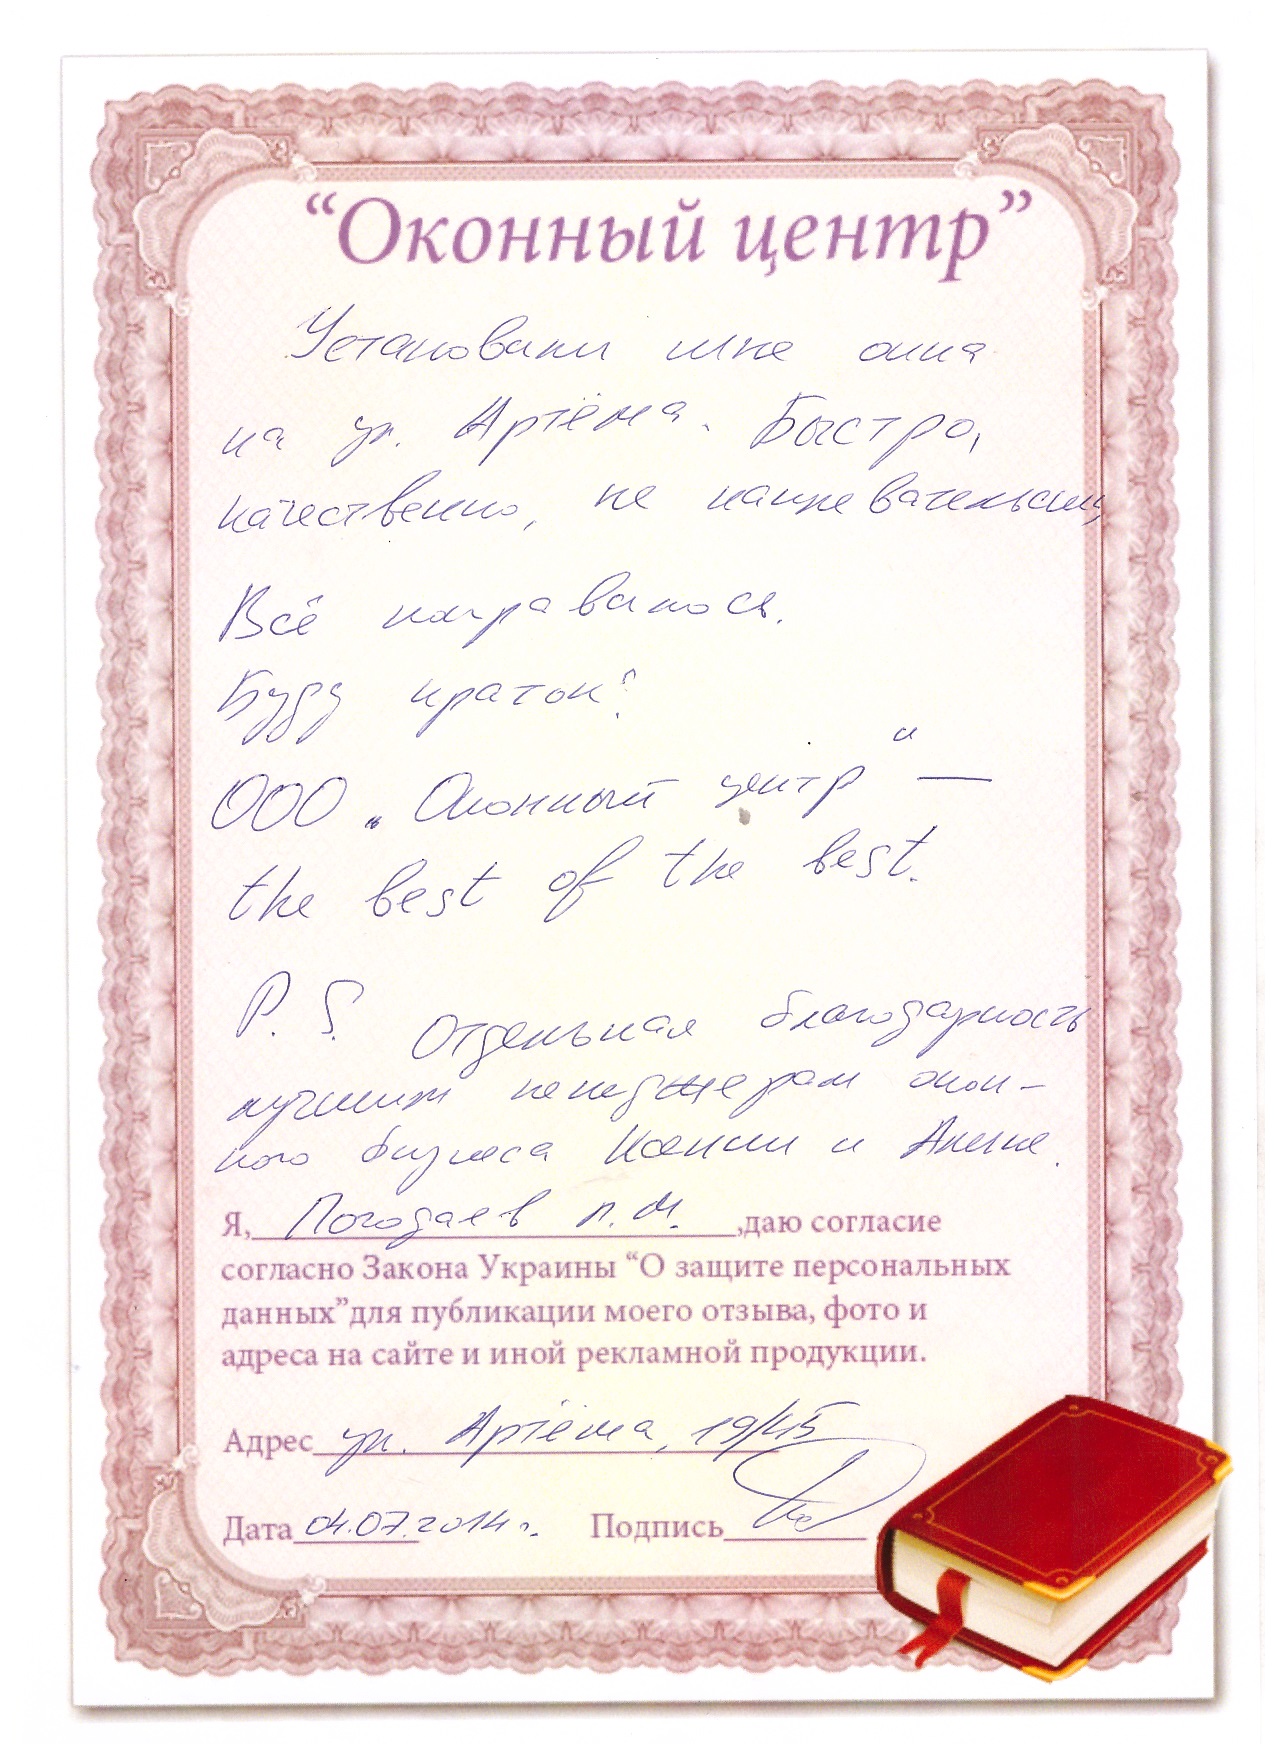 “Оконный центр”
Установили мне окна
на ул. Артёма. Быстро,
качественно, не
Всё понравилось.
Буду краток:
ООО „Оконный центр“ —
the best of the best.
P. S. Отдельная благодарность
лучшим менеджерам окон-
ного бизнеса Ксении и Алёне.
Я, Погодаев П. М. ,даю согласие
согласно Закона Украины “О защите персональных
данных”для публикации моего отзыва, фото и
адреса на сайте и иной рекламной продукции.
Адрес ул. Артёма,
Дата 04.07.2014 г. Подпись